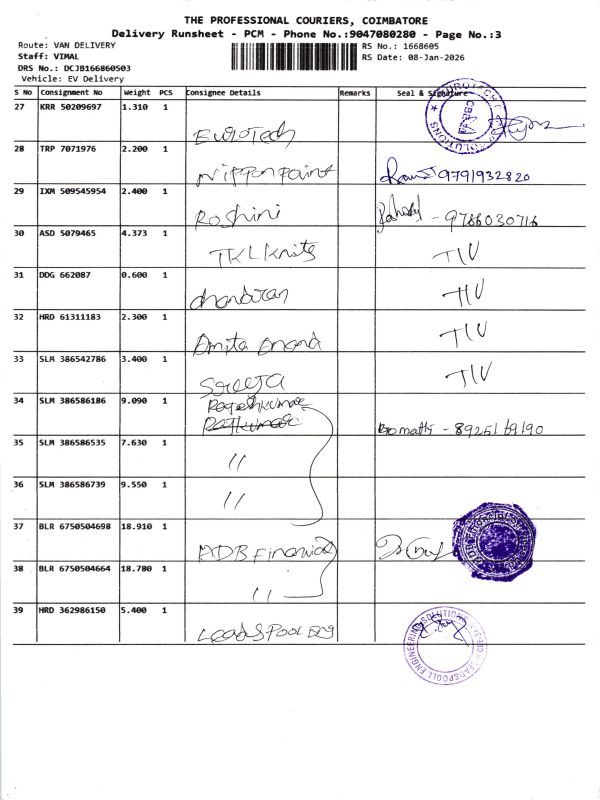 THE PROFESSIONAL COURIERS, COIMBATORE
Delivery Runsheet - PCM - Phone No.:9047080280 - Page No.:3
Route: VAN DELIVERY
Staff: VIMAL
DRS No.: DCJB166860503
Vehicle: EV Delivery
RS No.: 1668605
RS Date: 08-Jan-2026
S NO Consignment No Weight PCS Consignee Details Remarks Seal & Signature
27 KRR 50209697 1.310 1 Eurotech
28 TRP 7071976 2.200 1 Nippon paint 9791932820
29 IXM 509545954 2.400 1 Roshini - 9786030716
30 ASD 5079465 4.373 1 TKL knits TIV
31 DDG 662087 0.600 1 chandran TIV
32 HRD 61311183 2.300 1 Amita Anand TIV
33 SLM 386542786 3.400 1 Sreeja TIV
34 SLM 386586186 9.090 1 Rajeshkumar
Rajkumar
Gomathi - 8925169190
35 SLM 386586535 7.630 1 "
36 SLM 386586739 9.550 1 "
37 BLR 6750504698 18.910 1 ADB Financial
38 BLR 6750504664 18.780 1 "
39 HRD 362986150 5.400 1 Leadspool Eng
LEADSPOOLL ENGINEERING SOLUTIONS